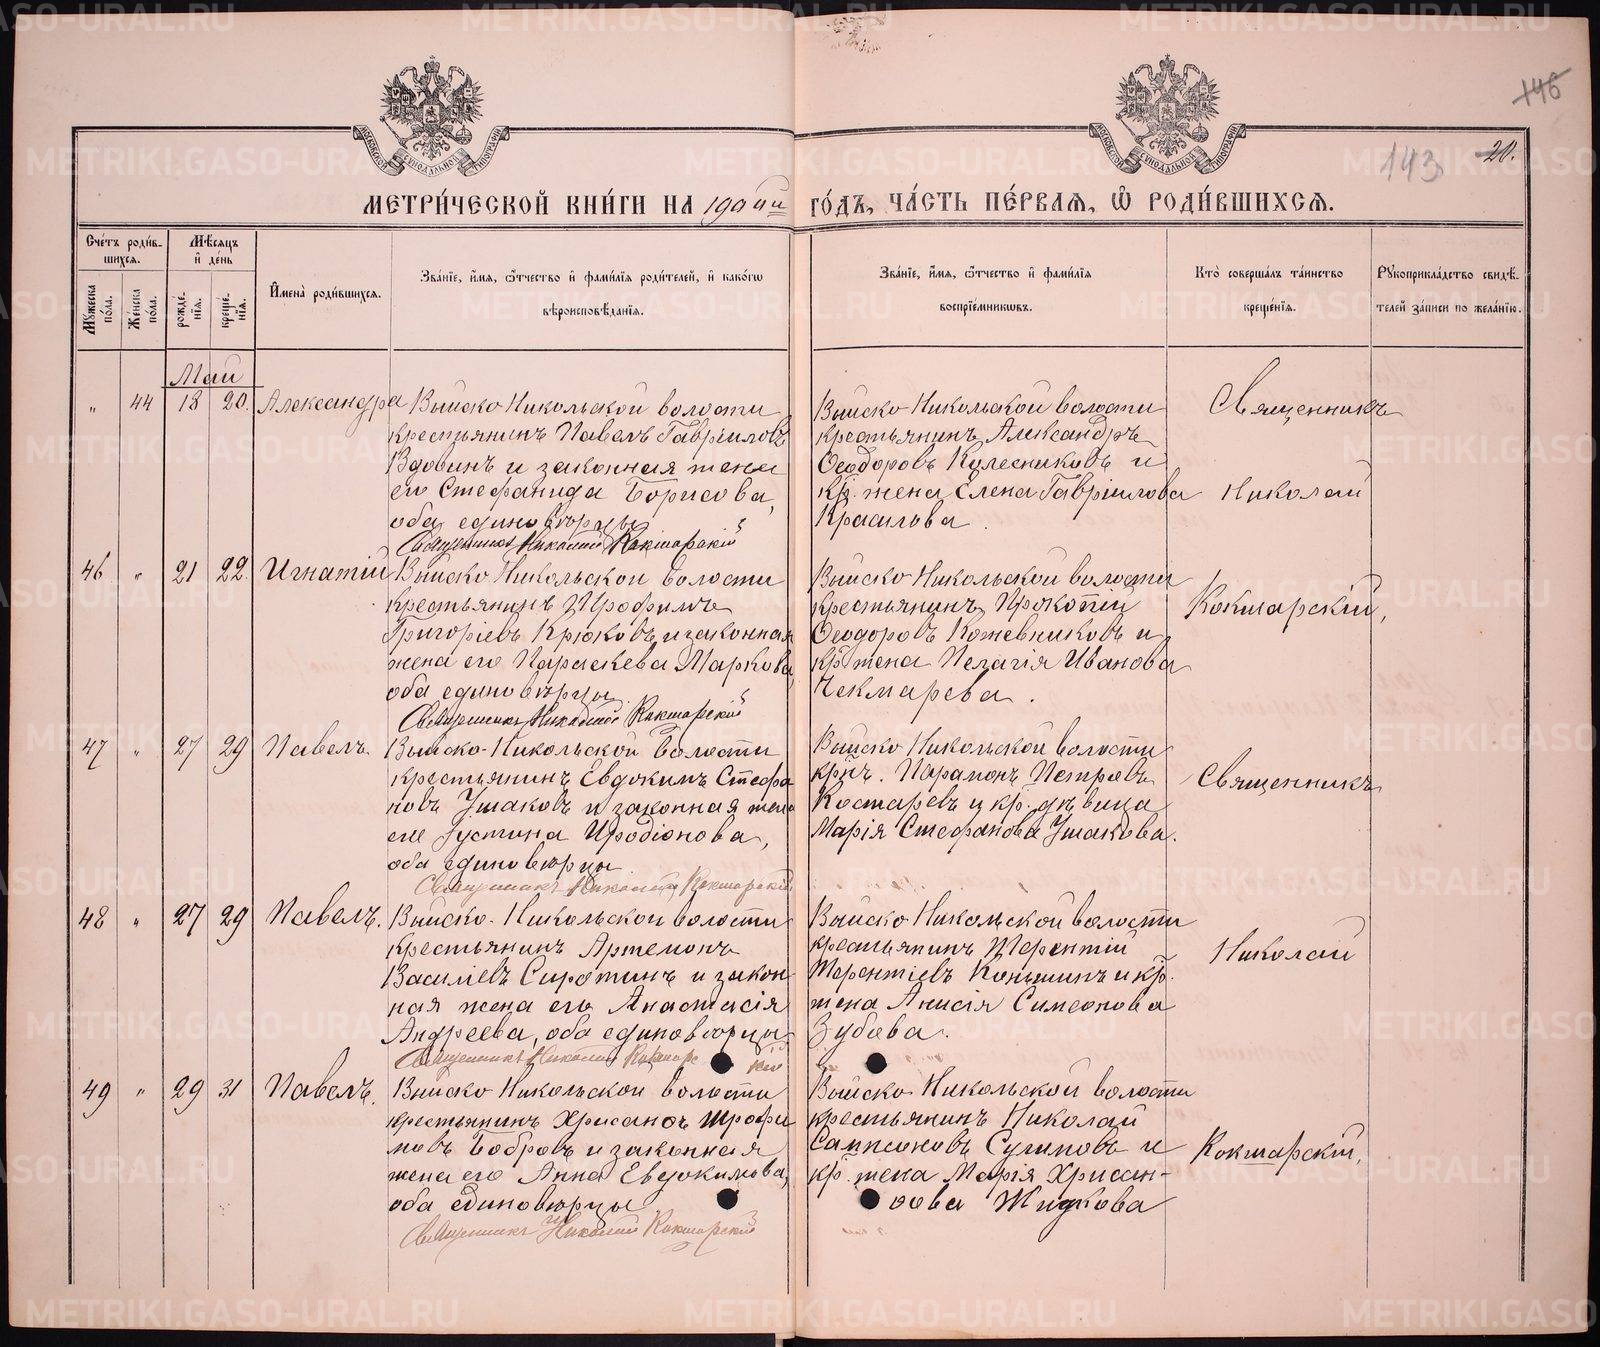 146
143
20.
МЕТРИ́ЧЕСКОЙ КНИ́ГИ НА 1900ый ГО́ДЪ, ЧА́СТЬ ПЕ́РВАЯ, Ѡ РОДИ́ВШИХСЯ.
Счетъ родившихся.
Мѣсяцъ и день
Мужеска пола.
Женска пола.
рожденія.
крещенія.
Имена родившихся.
Званіе, имя, отчество и фамилія родителей, и какогѡ вѣроисповѣданія.
Званіе, имя, отчество и фамилія воспріемниковъ.
Кто совершалъ таинство крещенія.
Рукоприкладство свидѣтелей записи по желанію.
Май
" 44 18 20. Александра
Выйско-Никольской волости
крестьянинъ Павелъ Гавріиловъ
Вдовинъ и законная жена
его Стефанида Борисова,
оба единовѣрцы
Священникъ Николай Кокшарскій
Выйско-Никольской волости
крестьянинъ Александръ
Ѳеодоровъ Колесниковъ и
кр. жена Елена Гавріилова
Красилова.
Священникъ
Николай
Кокшарскій,
46 " 21 22. Игнатій
Выйско-Никольской волости
крестьянинъ Трофимъ
Григоріевъ Крюковъ и законная
жена его Параскева Маркова,
оба единовѣрцы
Священникъ Николай Кокшарскій
Выйско-Никольской волости
крестьянинъ Прокопій
Ѳеодоровъ Кожевниковъ и
кр. жена Пелагія Иванова
Чекмарева.
47 " 27 29 Павелъ.
Выйско-Никольской волости
крестьянинъ Евдокимъ Стефа
новъ Ушаковъ и законная жена
его Іустина Иродіонова,
оба единовѣрцы
Священникъ Николай Кокшарскій
Выйско-Никольской волости
кр-нъ. Парамонъ Петровъ
Костаревъ и кр. дѣвица
Марія Стефанова Ушакова.
Священникъ
Николай
Кокшарскій,
48 " 27 29 Павелъ.
Выйско-Никольской волости
крестьянинъ Артемонъ
Василіевъ Сиротинъ и закон
ная жена его Анастасія
Андреева, оба единовѣрцы
Священникъ Николай Кокшарскій
Выйско-Никольской волости
крестьянинъ Терентій
Терентіевъ Коньшинъ и кр.
жена Анисія Симеонова
Зубова.
49 " 29 31 Павелъ.
Выйско-Никольской волости
крестьянинъ Хрисанѳъ Трофи
мовъ Бобровъ и законная
жена его Анна Евдокимова,
оба единовѣрцы
Священникъ Николай Кокшарскій
Выйско-Никольской волости
крестьянинъ Николай
Сампсоновъ Сулимовъ и
кр. жена Марія Хрисан-
ѳова Жидкова
METRIKI.GASO-URAL.RU